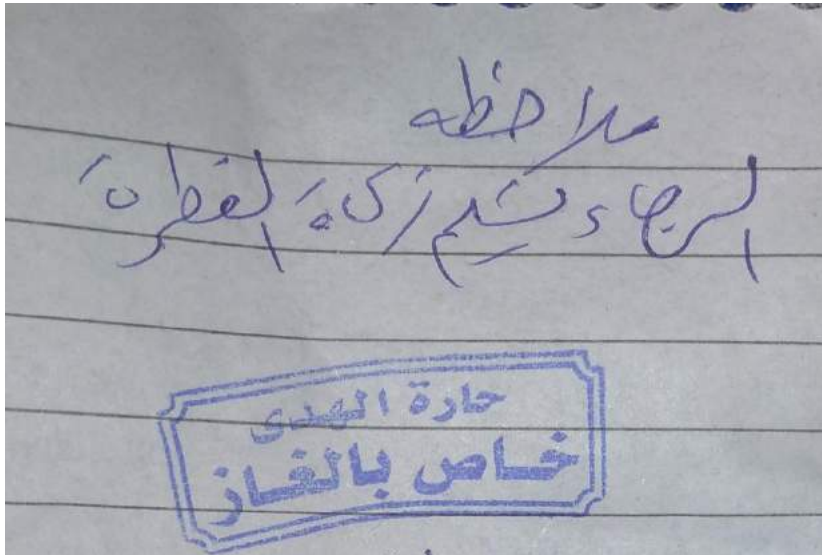 ملاحظه
الرجاء تسليم زكاة الفطرة
حارة الهدى
خاص بالغاز